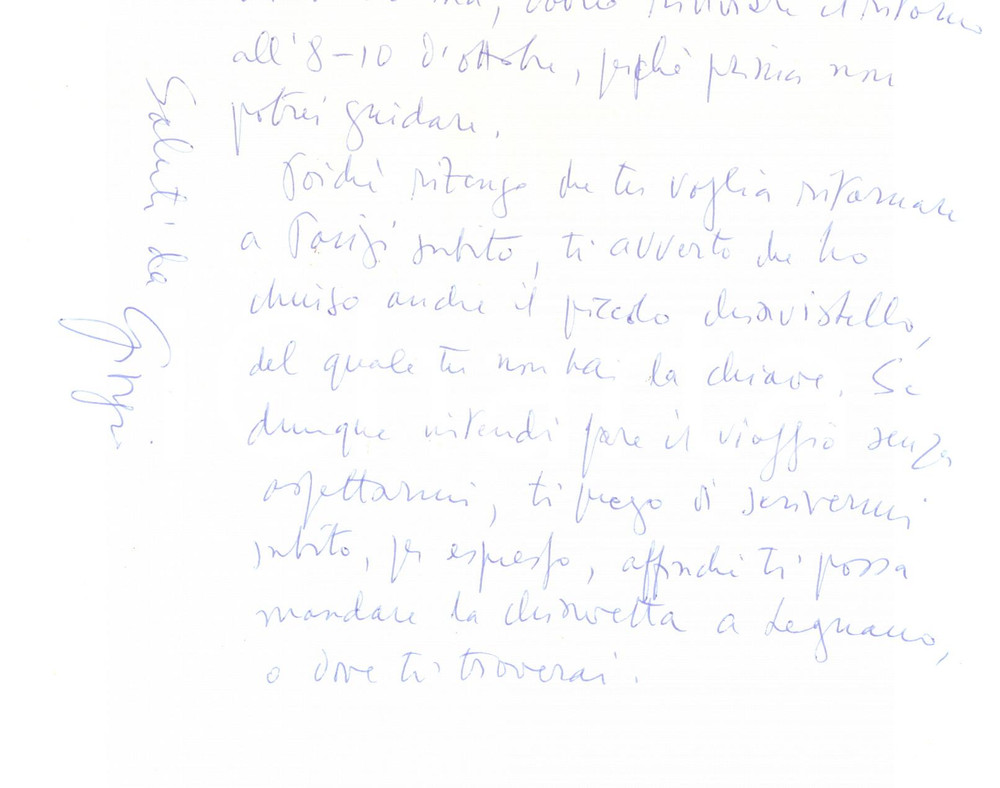 dovrò rinviare il ritorno
all'8-10 d'ottobre, perché prima non
potrei guidare.
Poiché ritengo che tu voglia ritornare
a Parigi subito, ti avverto che ho
chiuso anche il piccolo chiavistello,
del quale tu non hai la chiave. Se
dunque intendi fare il viaggio senza
aspettarmi, ti prego di scrivermi
subito, per espresso, affinché ti possa
mandare la chiavetta a Legnano,
o dove ti troverai.
Saluti da